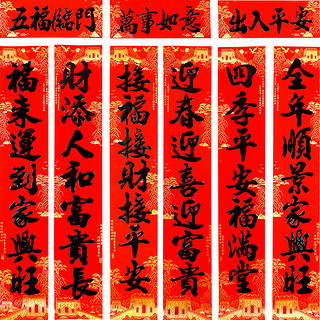 五福臨門
萬事如意
出入平安
全年順景家興旺
四季平安福滿堂
迎春迎喜迎富貴
接福接財接平安
財添人和富貴長
福來運到家興旺